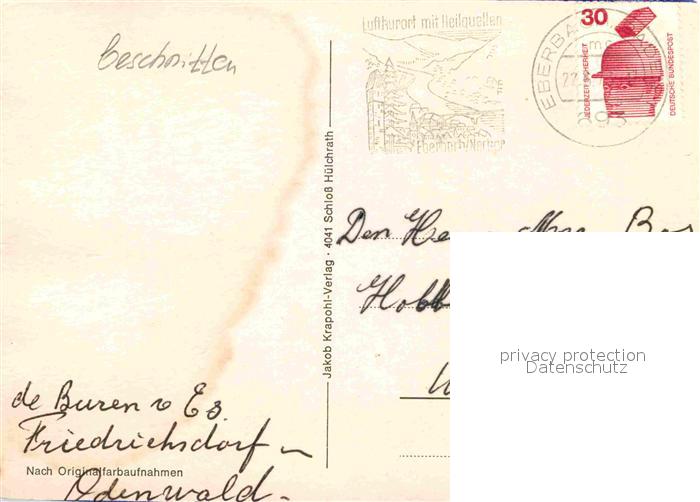 Beschnitten
Luftkurort mit Heilquellen
Eberbach/Neckar
EBERBA
30
JEDERZEIT SICHERHEIT
DEUTSCHE BUNDESPOST
693
Jakob Krapohl-Verlag · 4041 Schloß Hülchrath
Den
privacy protection
Datenschutz
de Buren v Es.
Friedrichsdorf -
Odenwald -
Nach Originalfarbaufnahmen